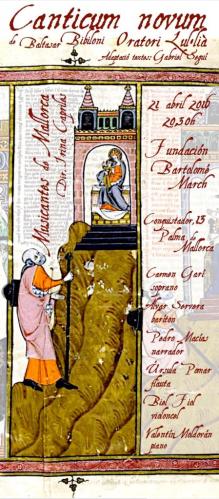 Canticum novum
de Baltasar Bibiloni Oratori Lul·lià
Adaptació textos: Gabriel Seguí
Musicantes de Mallorca
Dir. Irina Capriles
21 abril 2016
20,30h
Fundación
Bartolomé
March
Conquistador, 13
Palma de
Mallorca
Carmen Garí
soprano
Àlvar Servera
baríton
Pedro Macías
narrador
Úrsula Pomar
flauta
Biel Fiol
violoncel
Valentín Moldován
piano